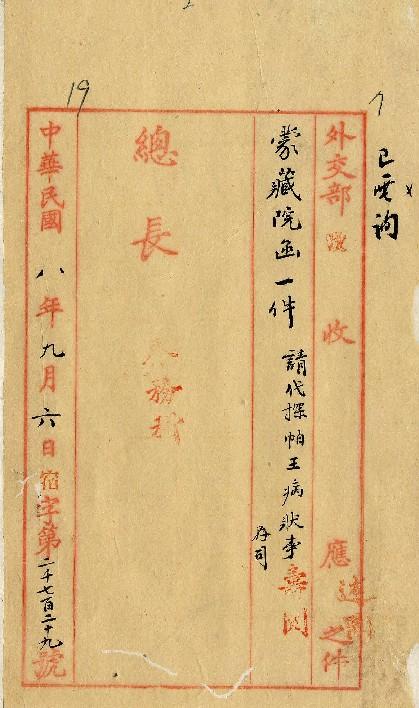 19
已電詢
外交部 收 應 速 之件
蒙藏院函一件 請代探帕王病狀事
存司
總長
中華民國八年九月六日宿字第二千七百二十九號